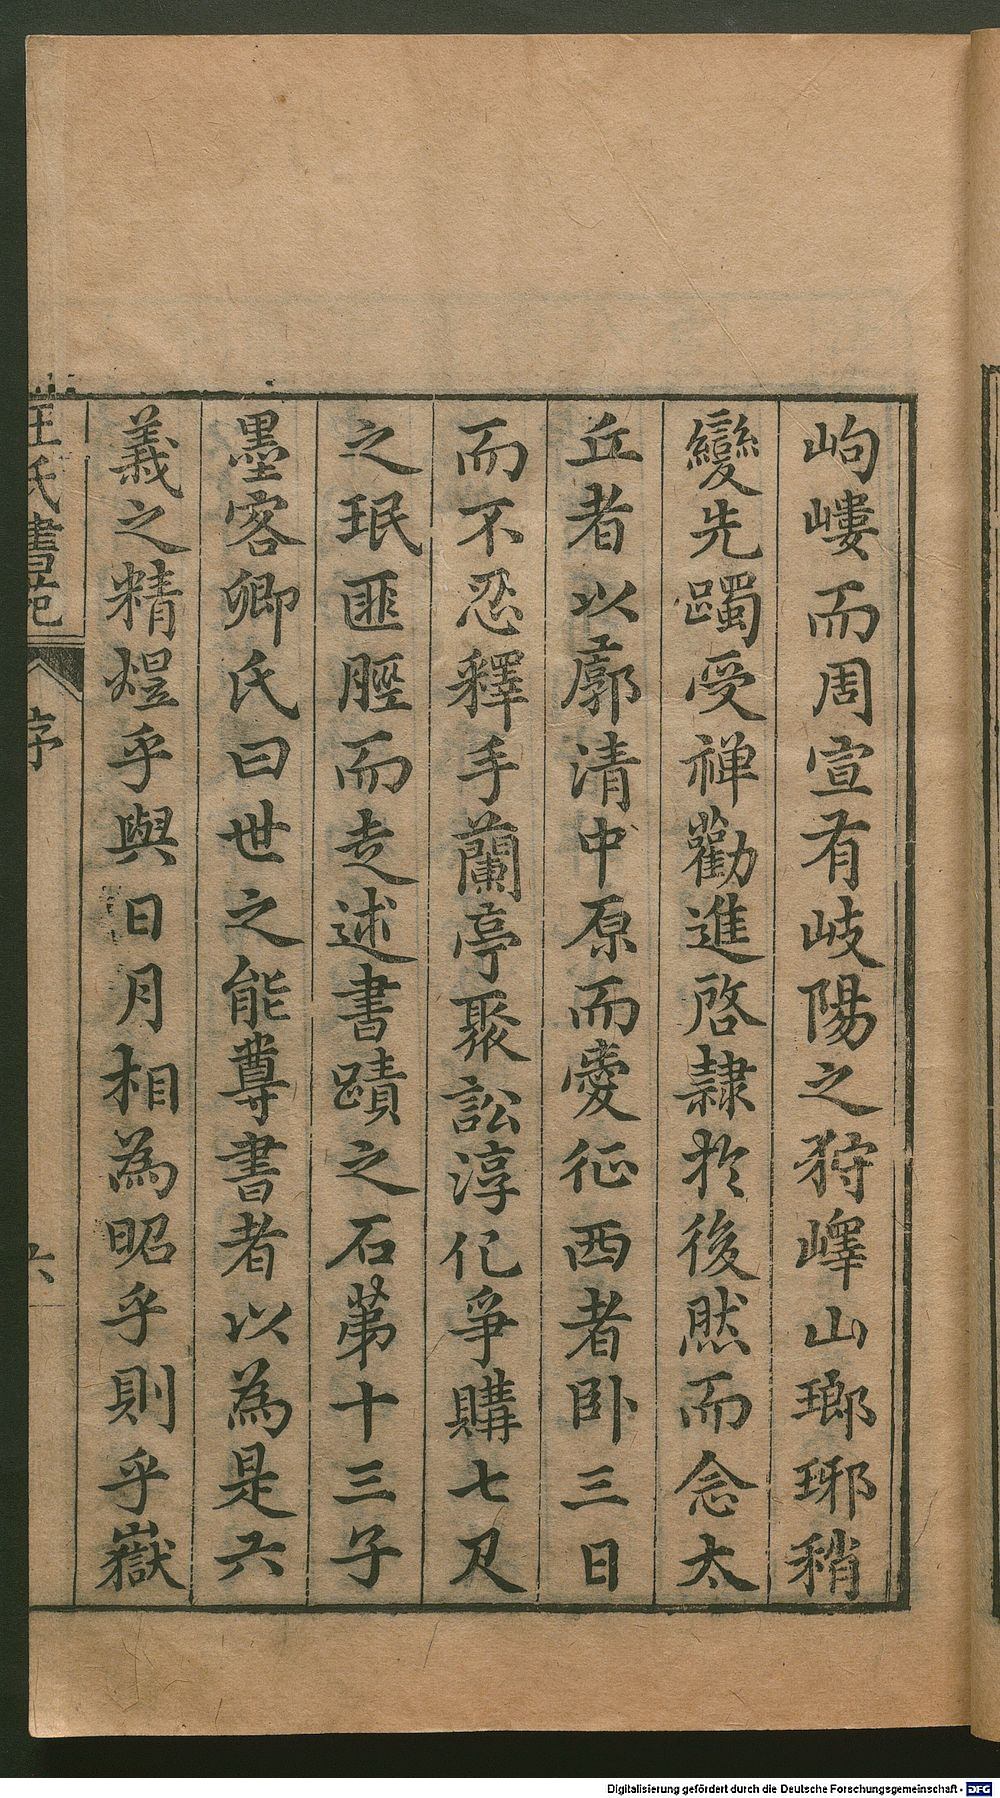 岣嶁而周宣有岐陽之狩嶧山瑯琊稍
變先躅受禅勸進啓隷於後然而念太
丘者以廓清中原而愛征西者卧三日
而不忍釋手蘭亭聚訟淳化爭購七尺
之珉匪脛而走述書蹟之石苐十三子
墨客卿氏曰世之能尊書者以為是六
義之精煜乎與日月相為昭乎則乎嶽
王氏書苑
序
六
Digitalisierung gefördert durch die Deutsche Forschungsgemeinschaft - DFG